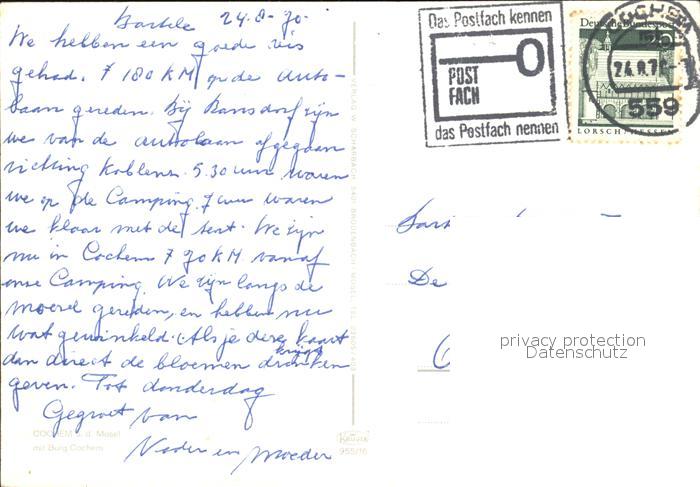 24-8-70
We hebben een goede reis
gehad. ± 180 KM op de auto-
baan gereden. Bij Ransdorf zijn
we van de autobaan afgegaan
richting Koblenz. 5.30 uur waren
we op de Camping. 7 uur waren
we klaar met de tent. We zijn
nu in Cochem ± 70 KM vanaf
onse Camping. We zijn langs de
moezel gereden, en hebben nu
wat gewinkeld. Als je deze kaart
krijgt
dan direct de bloemen drinken
geven. Tot donderdag
Gegroet van
Vader en Moeder
COCHEM a. d. Mosel
mit Burg Cochem
KRÜGER
955/16
Das Postfach kennen
POST
FACH
das Postfach nennen
Deutsche Bundespost
COCHEM
24.8.70
559
LORSCH/HESSEN
De
privacy protection
Datenschutz